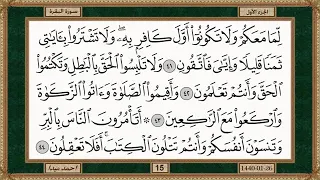 سورة البقرة
الجزء الأول
لِّمَا مَعَكُمْ وَلَا تَكُونُوٓا۟ أَوَّلَ كَافِرٍۭ بِهِۦ ۖ وَلَا تَشْتَرُوا۟ بِـَٔايَـٰتِى
ثَمَنًا قَلِيلًا وَإِيَّـٰىَ فَٱتَّقُونِ ٤١ وَلَا تَلْبِسُوا۟ ٱلْحَقَّ بِٱلْبَـٰطِلِ وَتَكْتُمُوا۟
ٱلْحَقَّ وَأَنتُمْ تَعْلَمُونَ ٤٢ وَأَقِيمُوا۟ ٱلصَّلَوٰةَ وَءَاتُوا۟ ٱلزَّكَوٰةَ
وَٱرْكَعُوا۟ مَعَ ٱلرَّٰكِعِينَ ٤٣ ۞ أَتَأْمُرُونَ ٱلنَّاسَ بِٱلْبِرِّ
وَتَنسَوْنَ أَنفُسَكُمْ وَأَنتُمْ تَتْلُونَ ٱلْكِتَـٰبَ ۚ أَفَلَا تَعْقِلُونَ ٤٤
15
1440-01-26